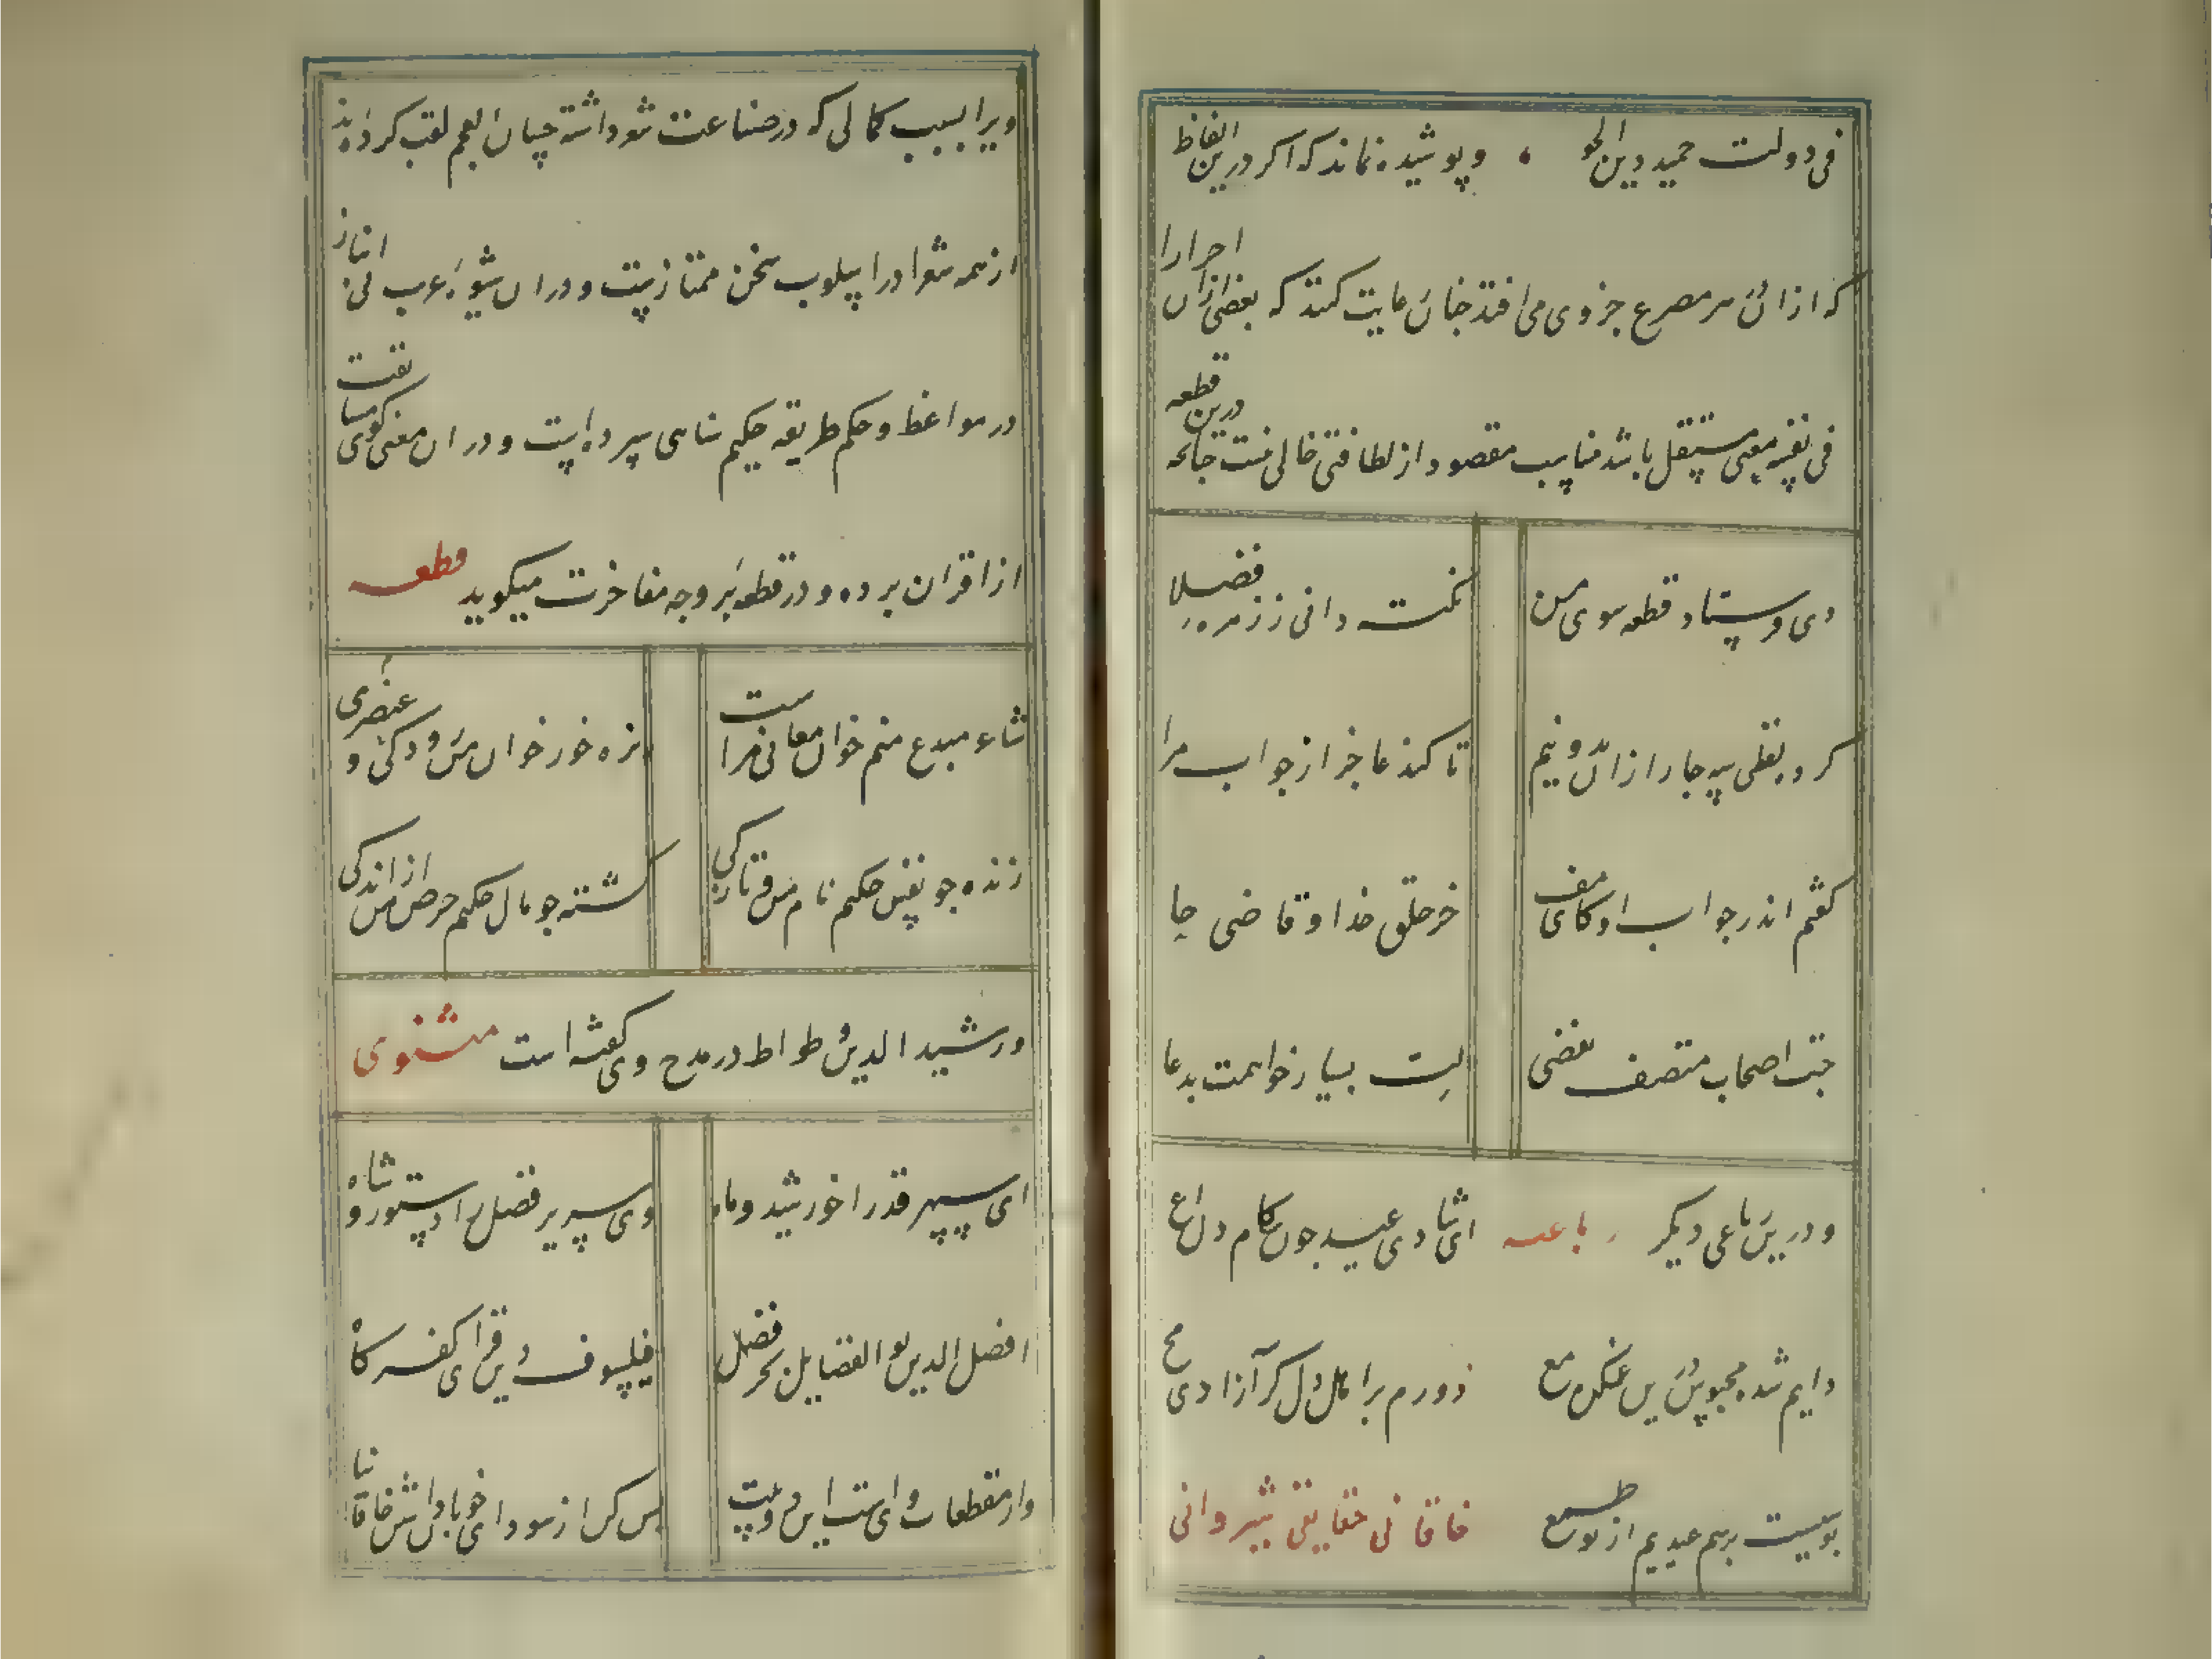 فی دولت حمید دین الحو ، وپوشیده نماند که اکر درین الفاظ
که ازان هر مصرع جزوی می افتد جنان رعایت کنند که بعضی ازان اجرا را
فی نفسه معنی مستقل باشد مناسب مقصود از لطافتی خالی نیست جنانکه درین قطعه
دی فرستاد قطعه سوی من
نکته دانی ز زمره فضلا
کرده لفظی سه جار ازان بدو نیم
تا کند عاجز از جواب مرا
کفتم اندر جواب او کای
خر خلق خدا و قاضی حا
جت اصحاب متصف بعضی
لیت بسیار خواهمت بدعا
ودرین رباعی دیکر رباعیه ای شادی عید جون نکام دل
دایم شده محبوس درین غمکده مع
ذورم برامل دل کر آزادی مح
بوسیت برسم عیدیم از تو طمع
خاقانی حقایقی شیروانی
ویرا بسبب کمالی که در صناعت شعر داشته حسان العجم لقب کرده‌اند
از همه شعرا در اسلوب سخن ممتازست و دران شیوه غریب بی انباز
در مواعظ و حکم طریقه حکیم سنایی سپرده است و دران معنی کوی مسابقت
از اقران برده و در قطعه بر وجه مفاخرت میکوید قطعه
شاعر مبدع منم خوان معانی مراست
ریزه خور خوان من رودکی و عنصری
زنده جو نفس حکیم نام من از تازکی
کشته جو مال حکیم حرص من از اندکی
ورشید الدین وطواط در مدح وی کفته است مثنوی
ای سپهر قدر را خورشید وماه
وی سریر فضل را دستور و شاه
افضل الدین بو الفضایل بحر فضل
فیلسوف دین فزای کفر کاه
واز مقطعات وی است این دو بیت
بس کن از سودای خوبان داشتن خاقانیا